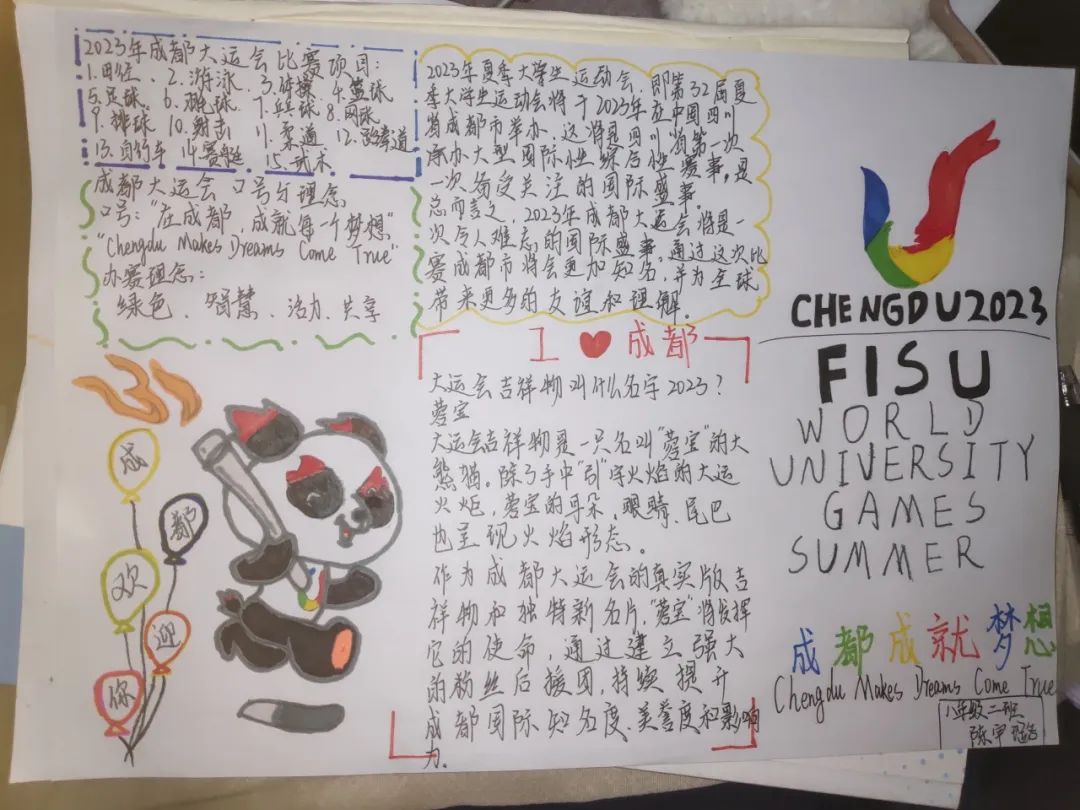 2023年成都大运会比赛项目:
1.田径、2.游泳、3.体操 4.篮球
5.足球、6.羽毛球、7.乒球 8.网球
9.排球 10.射击 11.柔道 12.跆拳道
13.自行车 14.赛艇 15.武术
成都大运会 口号与理念
口号:"在成都,成就每一个梦想"
"Chengdu Makes Dreams Come True"
办赛理念:
绿色、智慧、活力、共享
2023年夏季大学生运动会,即第32届夏
季大学生运动会将于2023年在中国四川
省成都市举办。这将是四川省第一次
承办大型国际性综合性赛事,是
一次备受关注的国际盛事。
总而言之,2023年成都大运会将是一
次令人难忘的国际盛事,通过这次比
赛成都市将会更加知名,并为全球
带来更多的友谊和理解。
CHENGDU2023
FISU
WORLD
UNIVERSITY
GAMES
SUMMER
成都成就梦想
Chengdu Makes Dreams Come True
八年级二班
陈宇
I ❤ 成都
大运会吉祥物叫什么名字2023?
蓉宝
大运会吉祥物是一只名叫"蓉宝"的大
熊猫。除了手中"31"字火焰的大运
火炬,蓉宝的耳朵、眼睛、尾巴
也呈现火焰形态。
作为成都大运会的真实版吉
祥物和独特新名片,"蓉宝"将发挥
它的使命,通过建立强大
的粉丝后援团,持续提升
成都国际知名度、美誉度和影响
力.
31
成
都
欢
迎
你